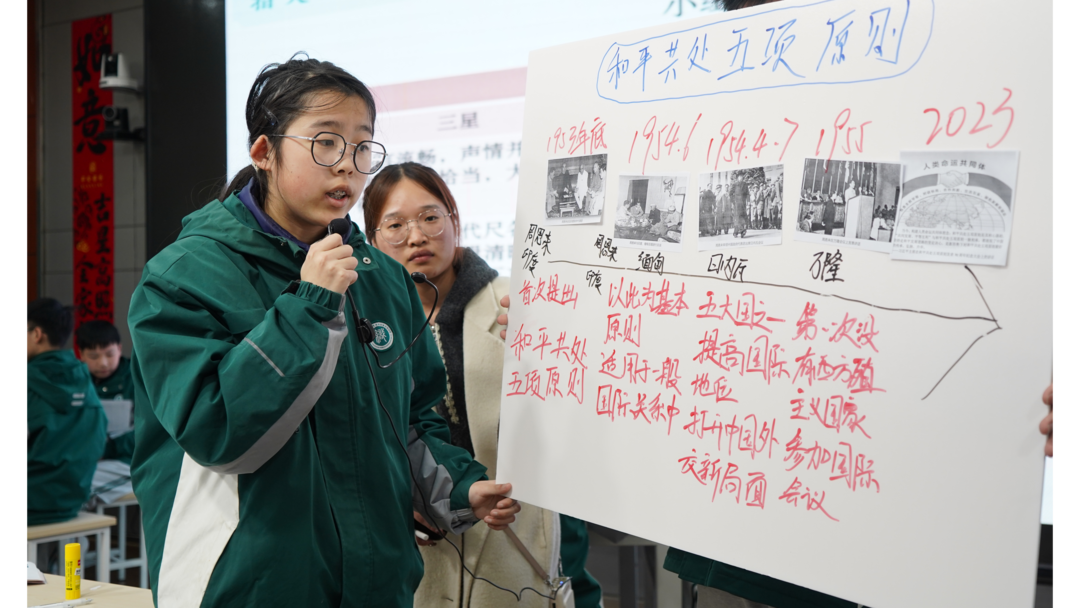 小组
三星
流畅，声情并
恰当，大
代尺
情清
意
吉星高照
和平共处五项原则
1953年底
1954.6
1954.4-7
1955
2023
人类命运共同体
周恩来
印度
周恩来
印度
缅甸
日内瓦
万隆
首次提出
和平共处
五项原则
以此为基本
原则
适用于一般
国际关系中
五大国之一
提高国际
地位
打开中国外
交新局面
第一次没
有西方殖
主义国家
参加国际
会议